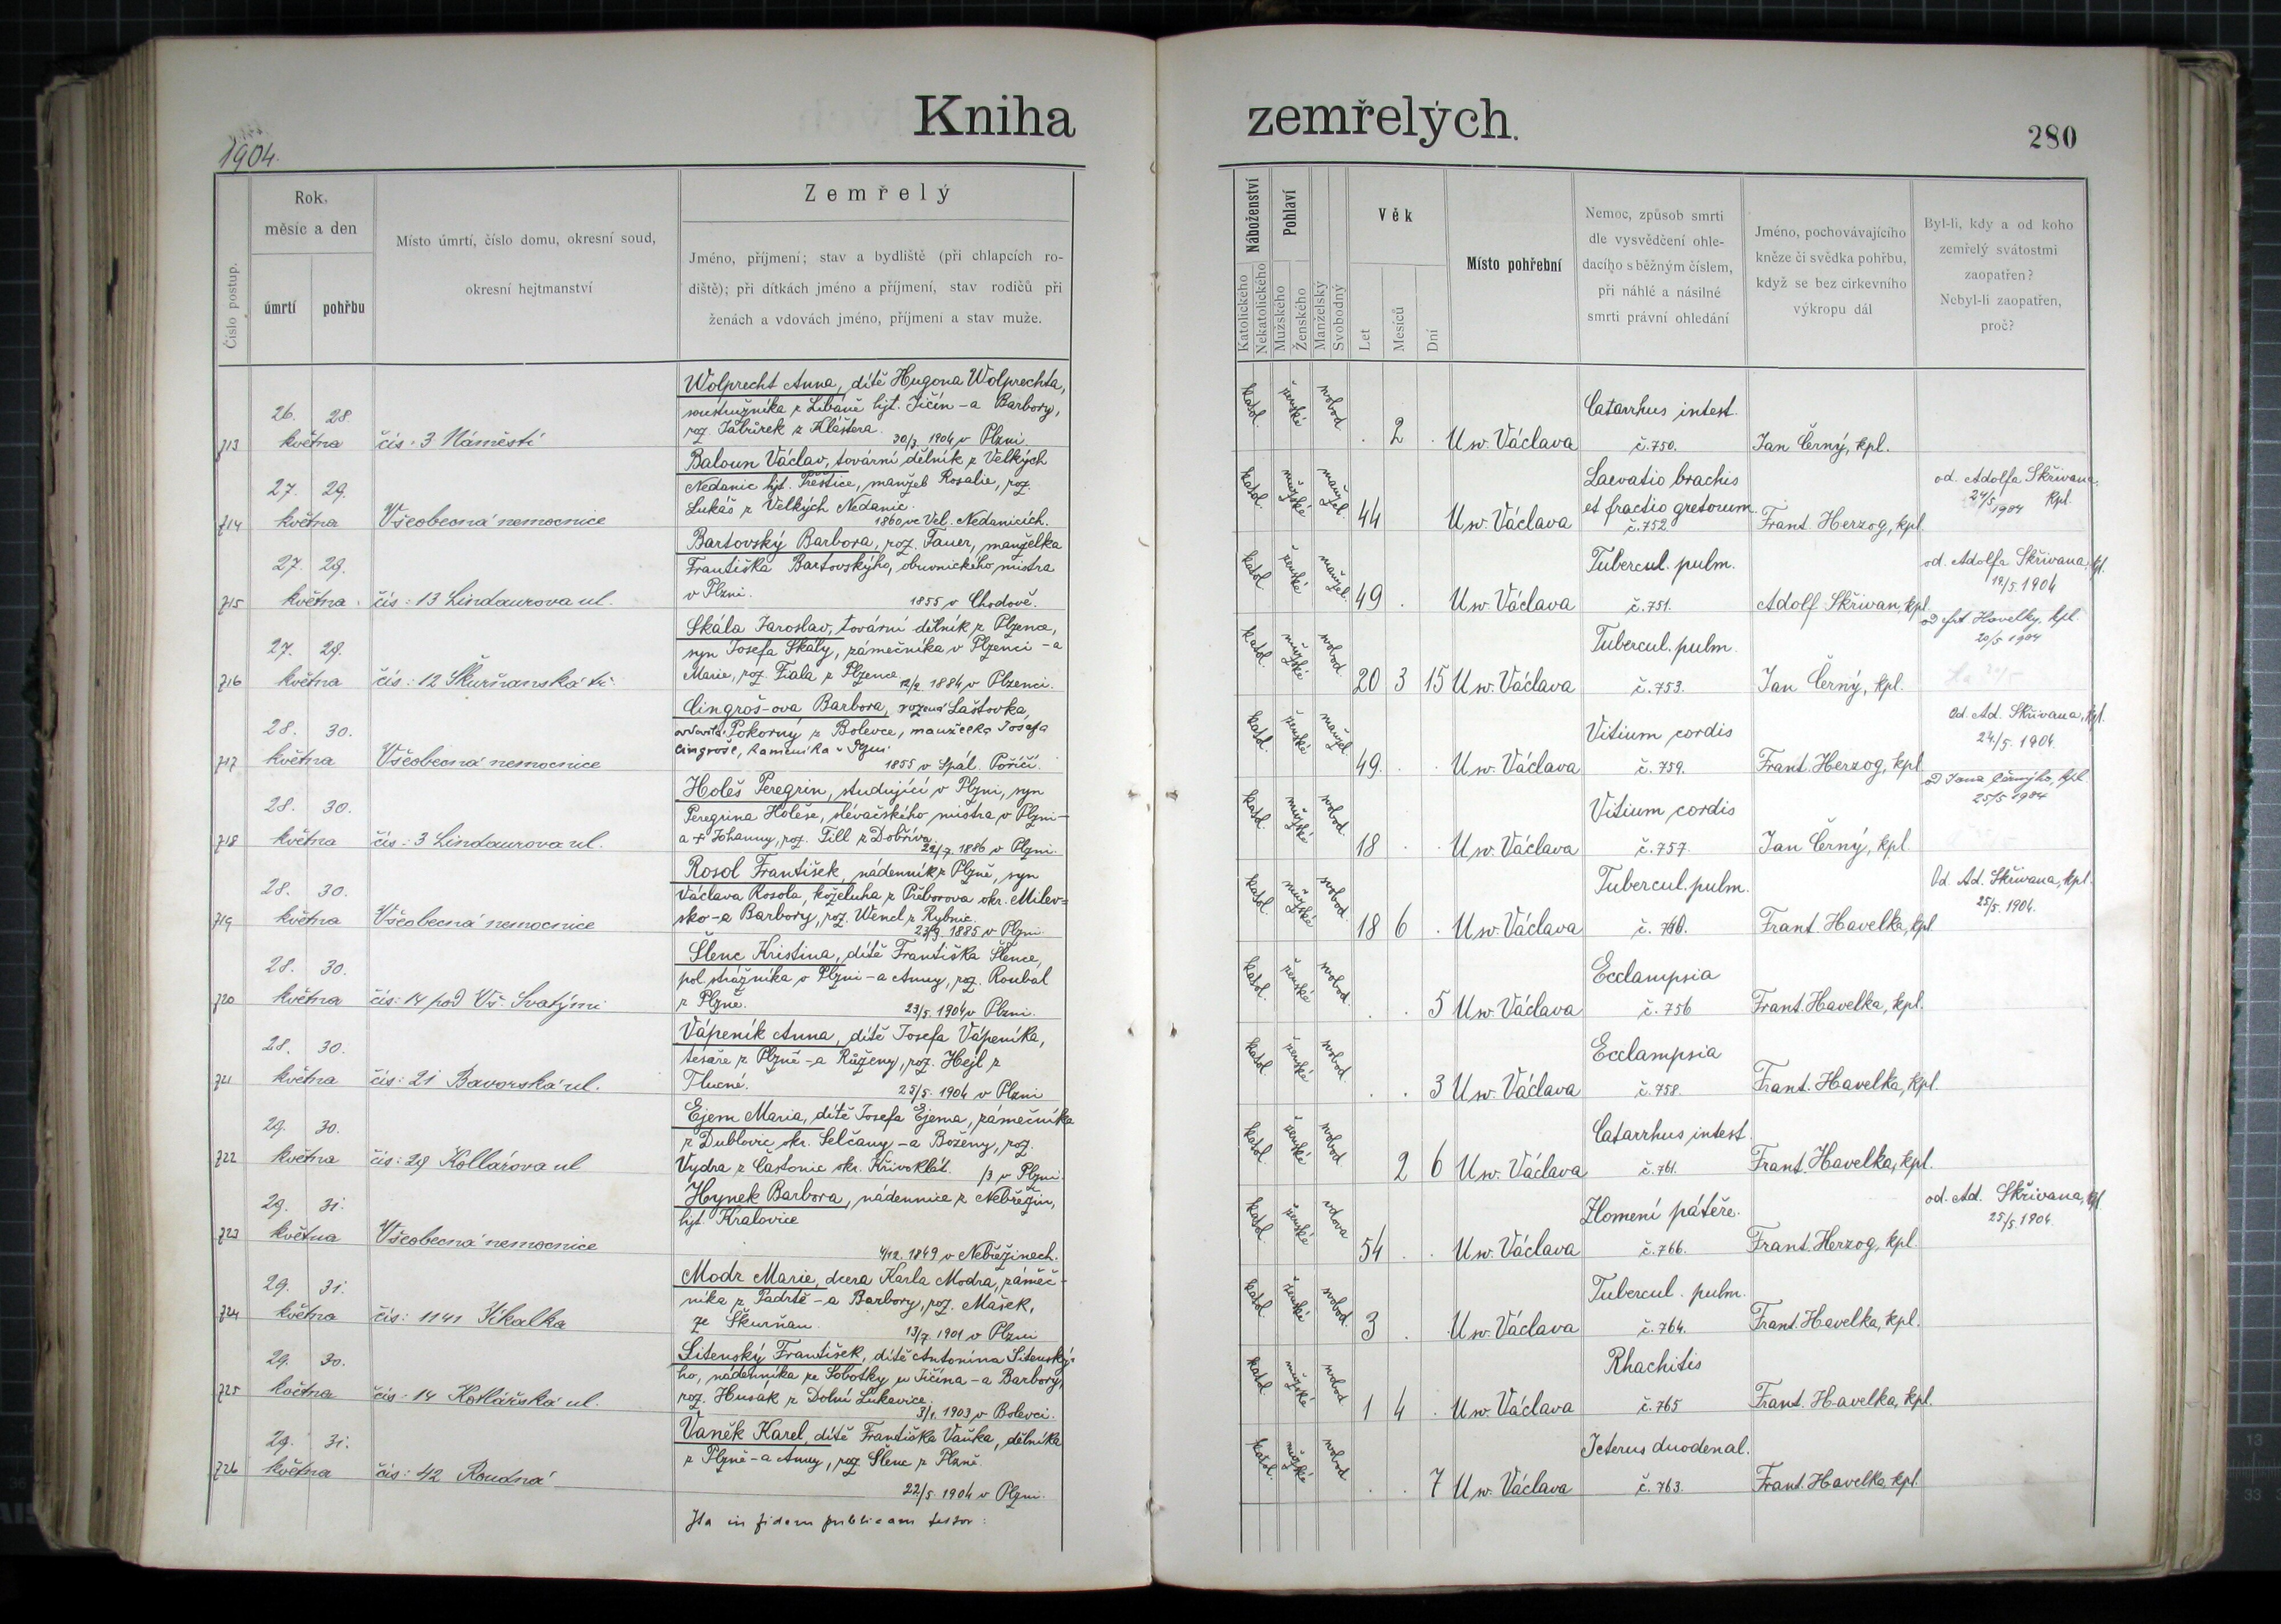 Kniha zemřelých.
280
1904.
Číslo postup.
Rok, měsíc a den
úmrtí
pohřbu
Místo úmrtí, číslo domu, okresní soud,
okresní hejtmanství
Zemřelý
Jméno, příjmení; stav a bydliště (při chlapcích ro-
diště); při dítkách jméno a příjmení, stav rodičů při
ženách a vdovách jméno, příjmení a stav muže.
Náboženství
Katolického
Nekatolického
Pohlaví
Mužského
Ženského
Manželský
Svobodný
Věk
Let
Mesíců
Dní
Místo pohřební
Nemoc, způsob smrti
dle vysvědčení ohle-
dacího s běžným číslem,
při náhlé a násilné
smrti právní ohledání
Jméno, pochovávajícího
kněze či svědka pohřbu,
když se bez cirkevního
výkropu dál
Byl-li, kdy a od koho
zemřelý svátostmi
zaopatřen?
Nebyl-li zaopatřen,
proč?
713 26. května 28. čís: 3 Náměstí
Wolprecht Anna, dítě Hugona Wolprechta,
soustružníka z Libáně hjt. Jičín - a Barbory,
roz. Jabůrek z Kláštera.
30/3. 1904 v Plzni.
katol. ženské svobod . 2 . U sv. Václava Catarrhus intest. č. 750. Jan Černý, kpl.
714 27. května 29. Všeobecná nemocnice
Baloun Václav, tovární dělník z Velkých
Nedanic hjt. Přeštice, manžel Rosalie, roz.
Lukáš z Velkých Nedanic.
1860 ve Vel. Nedanicích.
katol. mužské manžel. 44 U sv. Václava Laevatio brachis
et fractio gretorum č. 752. Frant. Herzog, kpl.
od. Adolfa Skřivana, kpl.
24/5 1904
715 27. května 29. čís: 13 Lindaurova ul.
Bartovský Barbora, roz. Fauer, manželka
Františka Bartovskýho, obuvnického mistra
v Plzni.
1855 v Chodově.
katol. ženské manžel. 49 . U sv. Václava Tubercul. pulm. č. 751. Adolf Skřivan, kpl.
od. Adolfa Skřivana, kpl.
19/5. 1904
716 27. května 29. čís: 12 Škurňanská tř.
Skála Jaroslav, tovární dělník z Plzence,
syn Josefa Skály, zámečníka v Plzenci - a
Marie, roz. Fiala z Plzence
12/2 1884 v Plzenci.
katol. mužské svobod 20 3 15 U sv. Václava Tubercul. pulm. č. 753. Jan Černý, kpl.
od Frt Havelky, kpl.
20/5 1904
717 28. května 30. Všeobecná nemocnice
Cingroš-ova Barbora, rozená Laštovka,
ovdovělá Pokorný z Bolevce, manželka Josefa
Cingroše, kameníka v Plzni
1855 v Spál. Poříčí.
katol. ženské manžel. 49. . . U sv. Václava Vitium cordis č. 759. Frant. Herzog, kpl.
Od. Ad. Skřivana, kpl.
24./5. 1904.
718 28. května 30. čís: 3 Lindaurova ul.
Holeš Peregrin, studující v Plzni, syn
Peregrina Holeše, slévačského mistra v Plzni -
a + Johanny, roz. Till z Dobříva
22/7. 1886 v Plzni.
katol. mužské svobod. 18 . . U sv. Václava Vitium cordis č. 757. Jan Černý, kpl.
od Jana Černýho, kpl.
25/5 1904
719 28. května 30. Všeobecná nemocnice
Rosol František, nádenník z Plzně, syn
Václava Rosola, koželuha z Přeborova okr. Milev=
sko - a Barbory, roz. Wencl z Rybnic.
23/9. 1885 v Plzni.
katol. mužské svobod. 18 6 . U sv. Václava Tubercul. pulm. č. 760. Frant. Havelka, kpl.
Od. Ad. Skřivana, kpl.
25/5. 1904.
720 28. května 30. čís: 14 pod Vš. Svatými
Šlenc Kristina, dítě Františka Šlence,
pol. strážníka v Plzni - a Anny, roz. Roubal
z Plzně.
23/5. 1904 v Plzni.
katol. ženské svobod. . . 5 U sv. Václava Ecclampsia č. 756 Frant. Havelka, kpl.
721 28. května 30. čís: 21 Bavorská ul.
Vápeník Anna, dítě Josefa Vápeníka,
tesaře z Plzně - a Růženy, roz. Hejl z
Tlucné.
25/5. 1904 v Plzni
katol. ženské svobod. . . 3 U sv. Václava Ecclampsia č. 758. Frant. Havelka, kpl.
722 29. května 30. čís: 29 Kollárova ul
Ejem Maria, dítě Josefa Ejema, zámečníka
z Dublovic okr. Selčany - a Boženy, roz.
Vydra z Častonic okr. Křivoklát.
/3 v Plzni.
katol. ženské svobod. 2 6 U sv. Václava Catarrhus intest. č. 761. Frant. Havelka, kpl.
723 29. května 31. Všeobecná nemocnice
Hynek Barbora, nádennice z Nebřežin,
hjt. Kralovice
4/12. 1849 v Nebřežinech.
katol. ženské vdova 54 . . U sv. Václava Zlomení páteře. č. 766. Frant. Herzog, kpl.
od. Ad. Skřivana, kpl.
25/5. 1904.
724 29. května 31. čís: 1141 Jikalka
Modr Marie, dcera Karla Modra, zámeč-
níka z Padrtě - a Barbory, roz. Mašek,
ze Škurňan.
13/7. 1901 v Plzni
katol. ženské svobod. 3 . U sv. Václava Tubercul. pulm. č. 764. Frant. Havelka, kpl.
725 29. května 30. čís: 14 Kotlářská ul.
Litenský František, dítě Antonína Litenský-
ho, nádenníka ze Sobotky u Jičína - a Barbory,
roz. Husák z Dolní Lukavice.
3/1. 1903 v Bolevci.
katol. mužské svobod 1 4 . U sv. Václava Rhachitis č. 765 Frant. Havelka, kpl.
726 29. května 31. čís: 42 Roudná
Vaněk Karel, dítě Františka Vaňka, dělníka
z Plzně - a Anny, roz. Šlenc z Plzně.
22/5. 1904 v Plzni.
katol. mužské svobod . . 7 U sv. Václava Icterus duodenal. č. 763. Frant. Havelka, kpl.
Ita in fidem publicam testor: